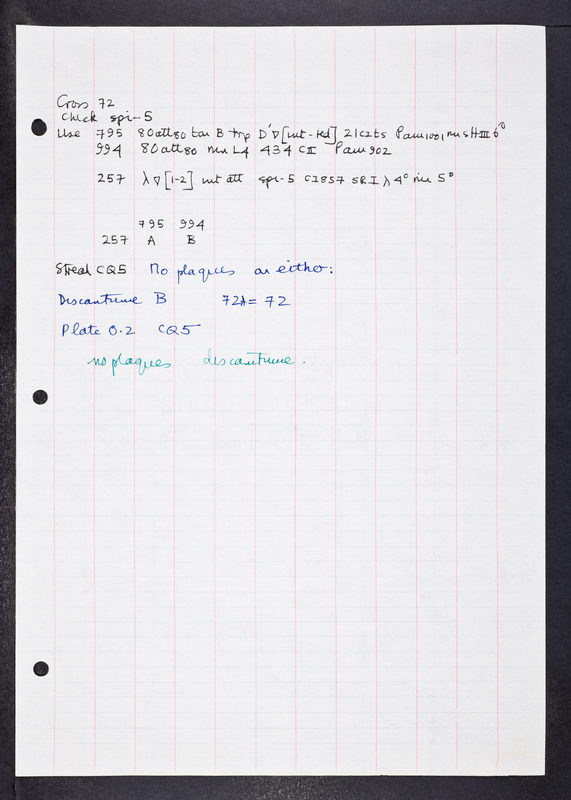 Cross 72
Check spi-5
Use 795 80att80 tar B trp D'∇[int-red] 21cIts Pam1001 nin5HIII 6°
994 80att80 nin L4 434 CII Pam902
257 λ∇[1-2] int att spi-5 CI857 SRI λ4° nin 5°
795 994
257 A B
Streak CQ5 No plaques on either:
B 72A = 72
Plate 0.2 CQ5
no plaques